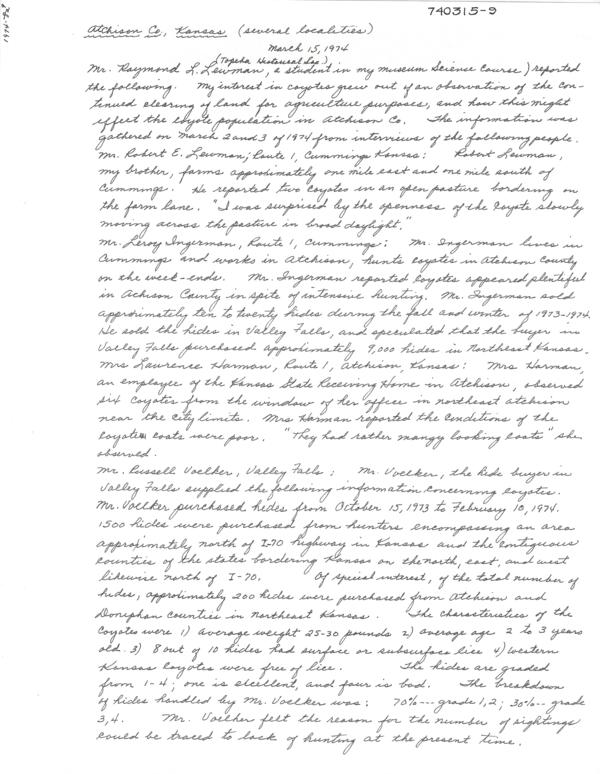 740315-9
1974-92
Atchison Co, Kansas (several localities)
March 15, 1974
(Topeka Historical Soc.)
Mr. Raymond L. Lewman, a student in my museum Science Course) reported
the following. My interest in coyotes grew out of an observation of the con-
tinued clearing of land for agriculture purposes, and how this might
effect the coyote population in Atchison Co. The information was
gathered on March 2 and 3 of 1974 from interviews of the following people.
Mr. Robert E. Lewman; Route 1, Cummings Kansas: Robert Lewman,
my brother, farms approximately one mile east and one mile south of
Cummings. He reported two coyotes in an open pasture bordering on
the farm lane. "I was surprised by the openness of the coyote slowly
moving across the pasture in broad daylight."
Mr. Leroy Ingerman, Route 1, Cummings: Mr. Ingerman lives in
Cummings and works in Atchison, hunts coyotes in Atchison County
on the week-ends. Mr. Ingerman reported coyotes appeared plentiful
in Achison County in spite of intensive hunting. Mr. Ingerman sold
approximately ten to twenty hides during the fall and winter of 1973-1974.
He sold the hides in Valley Falls, and speculated that the buyer in
Valley Falls purchased approximately 9,000 hides in Northeast Kansas.
Mrs Laurence Harman, Route 1, Atchison, Kansas: Mrs Harman,
an employee of the Kansas State Receiving Home in Atchison, observed
six coyotes from the window of her office in northeast Atchison
near the city limits. Mrs Harman reported the conditions of the
coyotes coats were poor. "They had rather mangy looking coats" she
observed.
Mr. Russell Voelker, Valley Falls: Mr. Voelker, the hide buyer in
Valley Falls supplied the following information concerning coyotes.
Mr. Voelker purchased hides from October 15, 1973 to February 10, 1974.
1500 hides were purchased from hunters encompassing an area
approximately north of I-70 highway in Kansas and the contiguous
counties of the states bordering Kansas on the north, east, and west
likewise north of I-70. Of special interest, of the total number of
hides, approximately 200 hides were purchased from Atchison and
Doniphan counties in northeast Kansas. The characteristics of the
coyotes were 1) average weight 25-30 pounds 2) average age 2 to 3 years
old. 3) 8 out of 10 hides had surface or subsurface lice 4) Western
Kansas coyotes were free of lice. The hides are graded
from 1-4; one is excellent, and four is bad. The breakdown
of hides handled by Mr. Voelker was: 70%---grade 1,2; 30%--grade
3,4. Mr. Voelker felt the reason for the number of sightings
could be traced to lack of hunting at the present time.